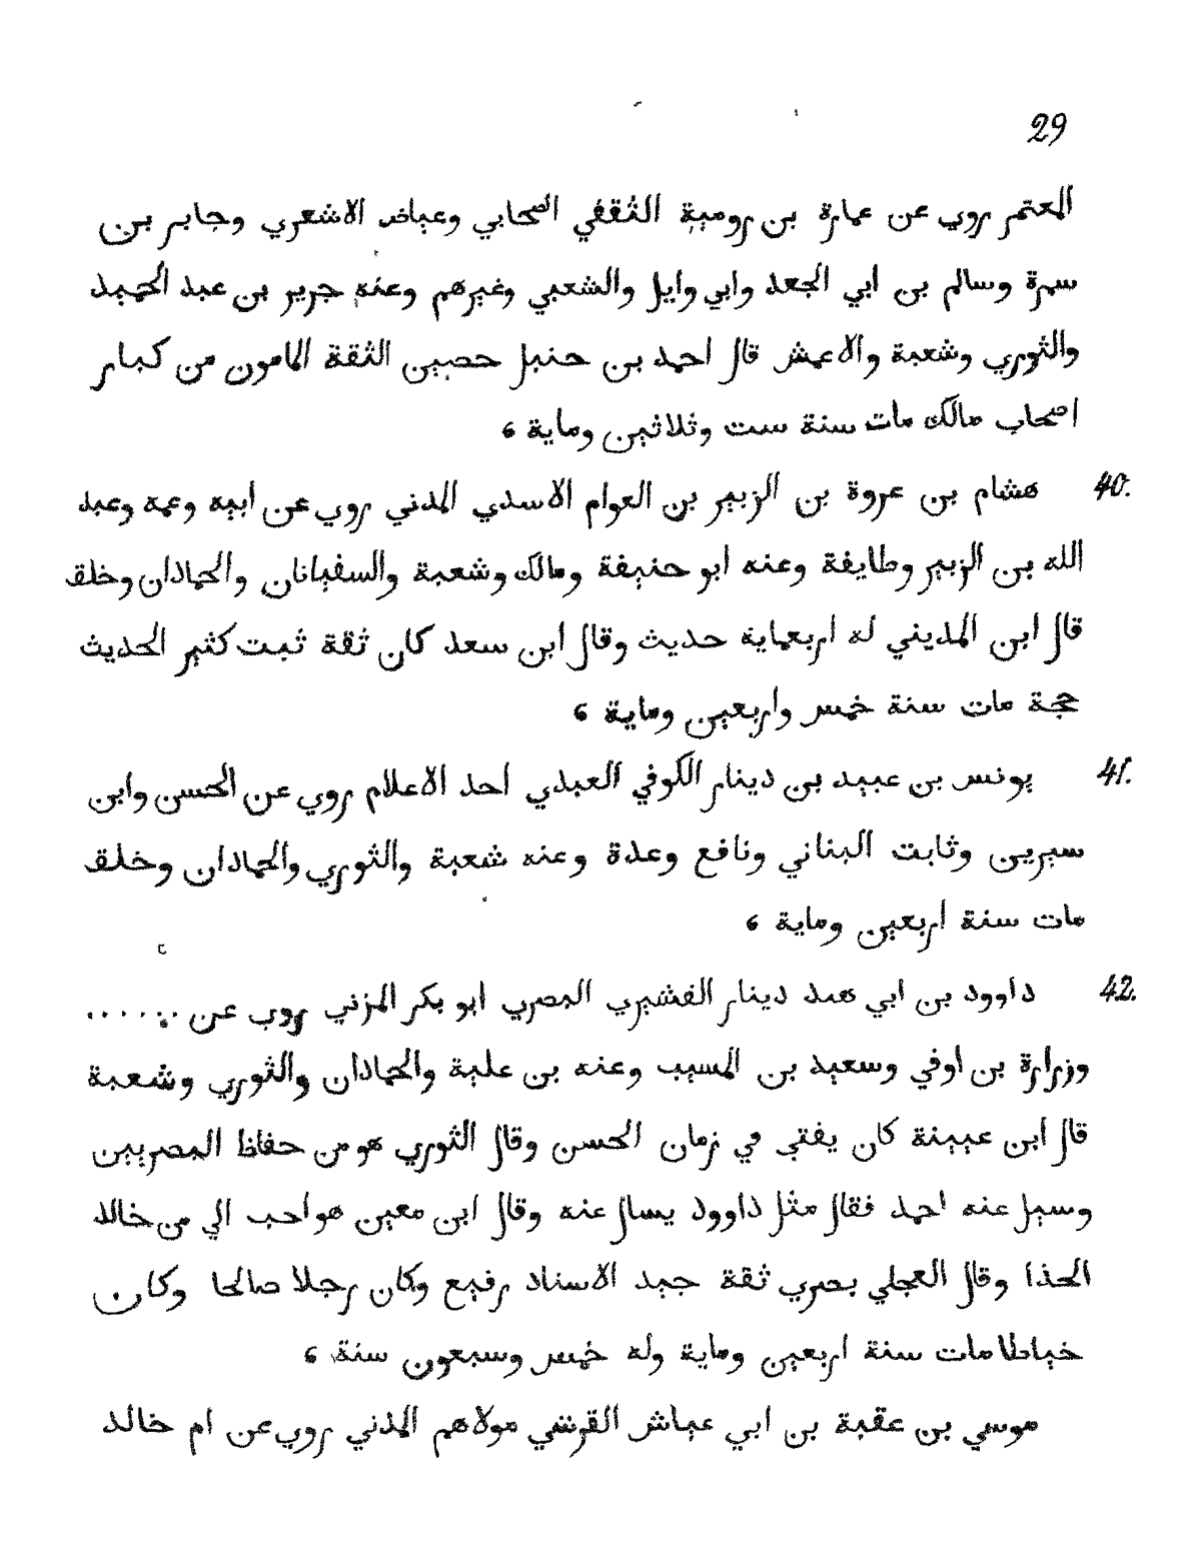 29
المعتمر روي عن عمارة بن رومية الثقفي الصحابي وعياض الاشعري وجابر بن
سمرة وسالم بن ابي الجعد وابي وايل والشعبي وغيرهم وعنه جرير بن عبد الحميد
والثوري وشعبة والاعمش قال احمد بن حنبل حصين الثقة المامون من كبار
اصحاب مالك مات سنة ست وثلاثين وماية ه
40. هشام بن عروة بن الزبير بن العوام الاسدي المدني روي عن ابيه وعمه وعبد
الله بن الزبير وطايفة وعنه ابو حنيفة ومالك وشعبة والسفيانان والحمادان وخلق
قال ابن المديني له اربعماية حديث وقال ابن سعد كان ثقة ثبت كثير الحديث
حجة مات سنة خمس واربعين وماية ه
41. يونس بن عبيد بن دينار الكوفي العبدي احد الاعلام روي عن الحسن وابن
سيرين وثابت البناني ونافع وعدة وعنه شعبة والثوري والحمادان وخلق
مات سنة اربعين وماية ه
42. داوود بن ابي هند دينار القشيري البصري ابو بكر المزني روي عن ......
وزرارة بن اوفي وسعيد بن المسيب وعنه بن علية والحمادان والثوري وشعبة
قال ابن عيينة كان يفتي في زمان الحسن وقال الثوري هو من حفاظ البصريين
وسيل عنه احمد فقال مثل داوود يسال عنه وقال ابن معين هو احب الي من خالد
الحذا وقال العجلي بصري ثقة جيد الاسناد رفيع وكان رجلا صالحا وكان
خياطا مات سنة اربعين وماية وله خمس وسبعون سنة ه
موسي بن عقبة بن ابي عياش القرشي مولاهم المدني روي عن ام خالد